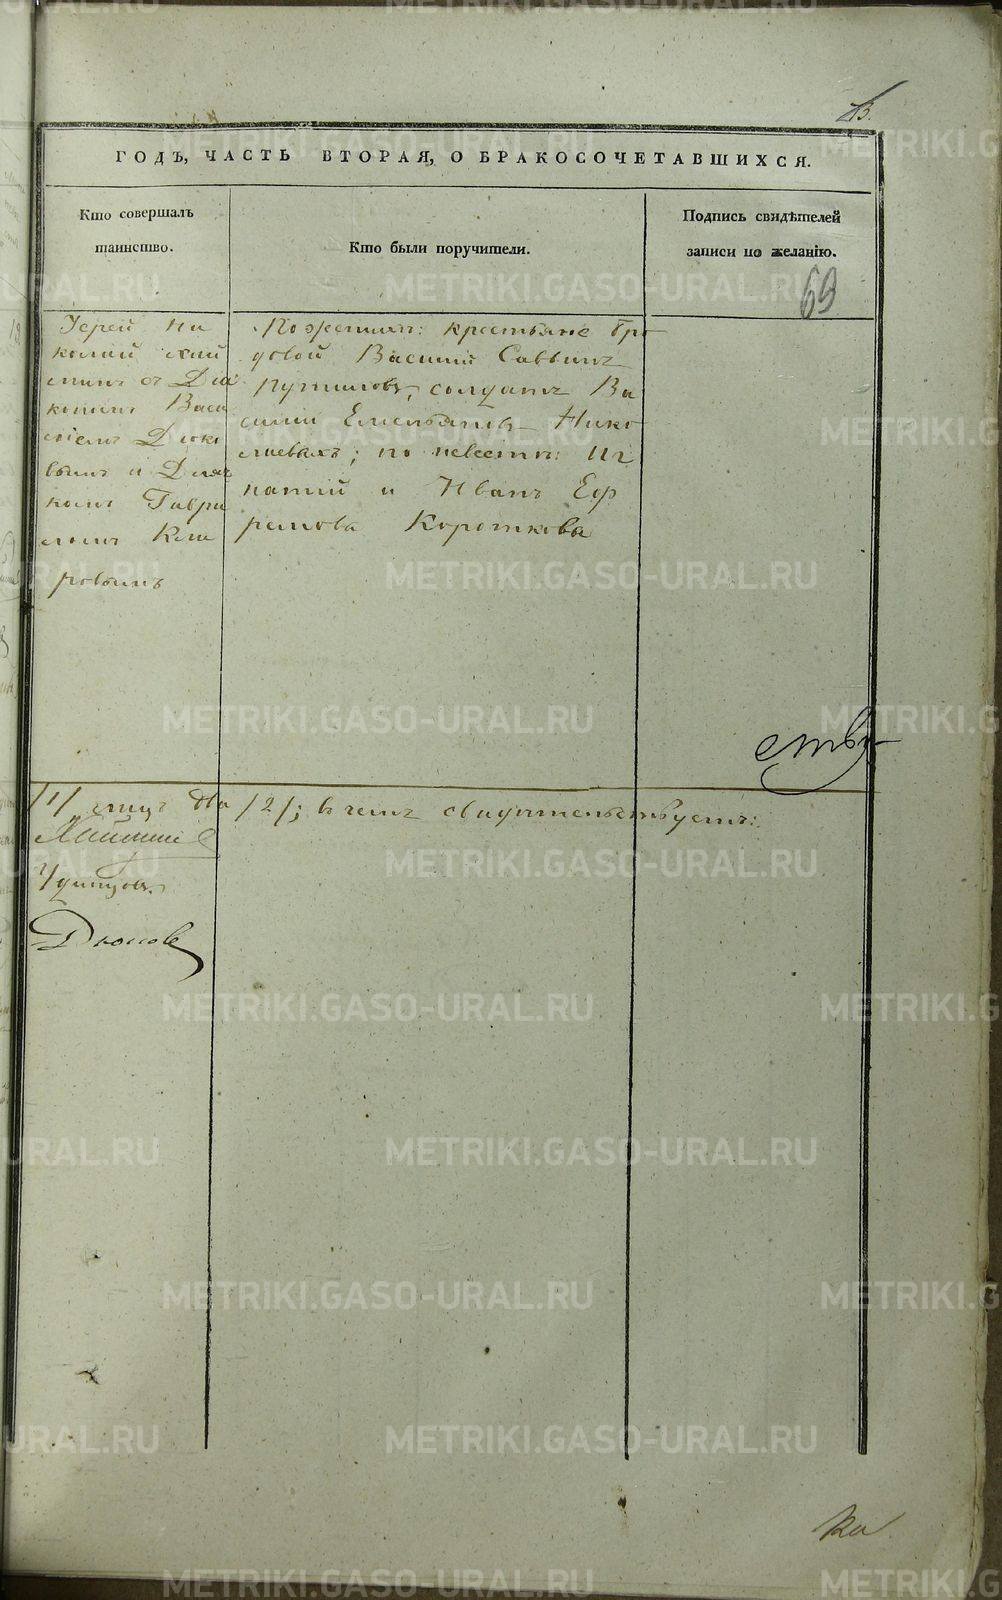 13.
ГОДЪ, ЧАСТЬ ВТОРАЯ, О БРАКОСОЧЕТАВШИХСЯ.
Кто совершалъ
таинство.
Кто были поручители.
Подпись свидѣтелей
записи по желанію.
69
Іерей Ни
колай
съ Діа
кономъ Васи
ліемъ Дюко
вымъ и Дьяч
комъ Гаври
ломъ Кома
ровымъ
По женихѣ: крестьяне Бро
довой Василий Саввинъ
Путиловъ, солдатъ Ва
силий Емельяновъ Нико
лаевыхъ; по невестѣ: Иг
натий и Иванъ Еф
ремова Короткова
ству
/1/ лицъ два /2/; в чемъ свидѣтельствуетъ:
Удинцовъ.
Дюков
Ка
METRIKI.GASO-URAL.RU